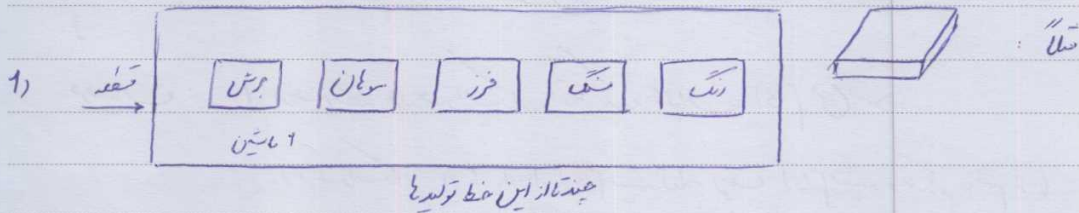 مثلاً :
1) قطعه برش سوهان فرز سنگ رنگ
1 ماشین
چندتا از این خط تولیدها